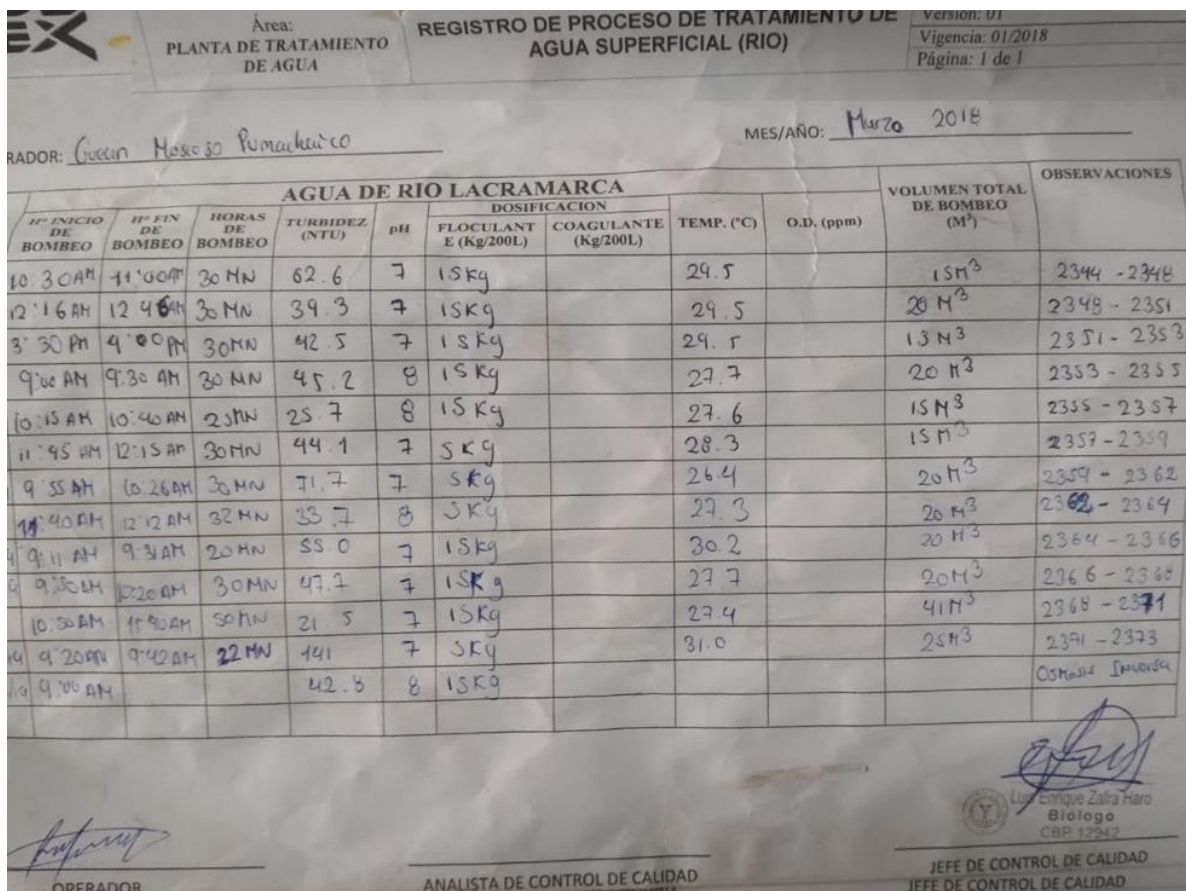 EX
Área:
PLANTA DE TRATAMIENTO
DE AGUA
REGISTRO DE PROCESO DE TRATAMIENTO DE
AGUA SUPERFICIAL (RIO)
Version: 01
Vigencia: 01/2018
Página: 1 de 1
RADOR:
MES/AÑO: Marzo 2018
AGUA DE RIO LACRAMARCA
Hº INICIO DE BOMBEO Hº FIN DE BOMBEO HORAS DE BOMBEO TURBIDEZ (NTU) pH DOSIFICACION FLOCULANTE (Kg/200L) COAGULANTE (Kg/200L) TEMP. (°C) O.D. (ppm) VOLUMEN TOTAL DE BOMBEO (M³) OBSERVACIONES
10:30AM 11:00AM 30 MN 62.6 7 15kg 29.5 15M³ 2344 - 2348
12:16 AM 12 46AM 30 MN 39.3 7 15Kg 29.5 20 M³ 2348 - 2351
3:30 PM 4:00 PM 30MN 42.5 7 15Kg 29.5 13 M³ 2351 - 2353
9:00 AM 9:30 AM 30 MN 45.2 8 15 Kg 27.7 20 M³ 2353 - 2355
10:15 AM 10:40 AM 25MN 25.7 8 15 Kg 27.6 15 M³ 2355 - 2357
11:45 AM 12:15 AM 30MN 44.1 7 5Kg 28.3 15 M³ 2357 - 2359
9 55 AM 10:26AM 30 MN 71.7 7 5Kg 26.4 20 M³ 2359 - 2362
11:40 AM 12:12 AM 32 MN 33.7 8 5Kg 27.3 20 M³ 2362 - 2364
9:11 AM 9:31AM 20MN 55.0 7 15kg 30.2 20 M³ 2364 - 2366
9:50AM 10:20AM 30MN 7 15Kg 27.7 20M³ 2366 - 2368
10:50 AM 50MN 21.5 7 15Kg 27.4 41M³ 2368 - 2371
9:20AM 9:42AM 22 MN 141 7 5Kg 31.0 25M³ 2371 - 2373
9:00 AM 42.8 8 15Kg Osmosis Inversa
Luis Enrique Zafra Haro
Biólogo
CBP. 12942
OPERADOR
ANALISTA DE CONTROL DE CALIDAD
JEFE DE CONTROL DE CALIDAD
JEFE DE CONTROL DE CALIDAD